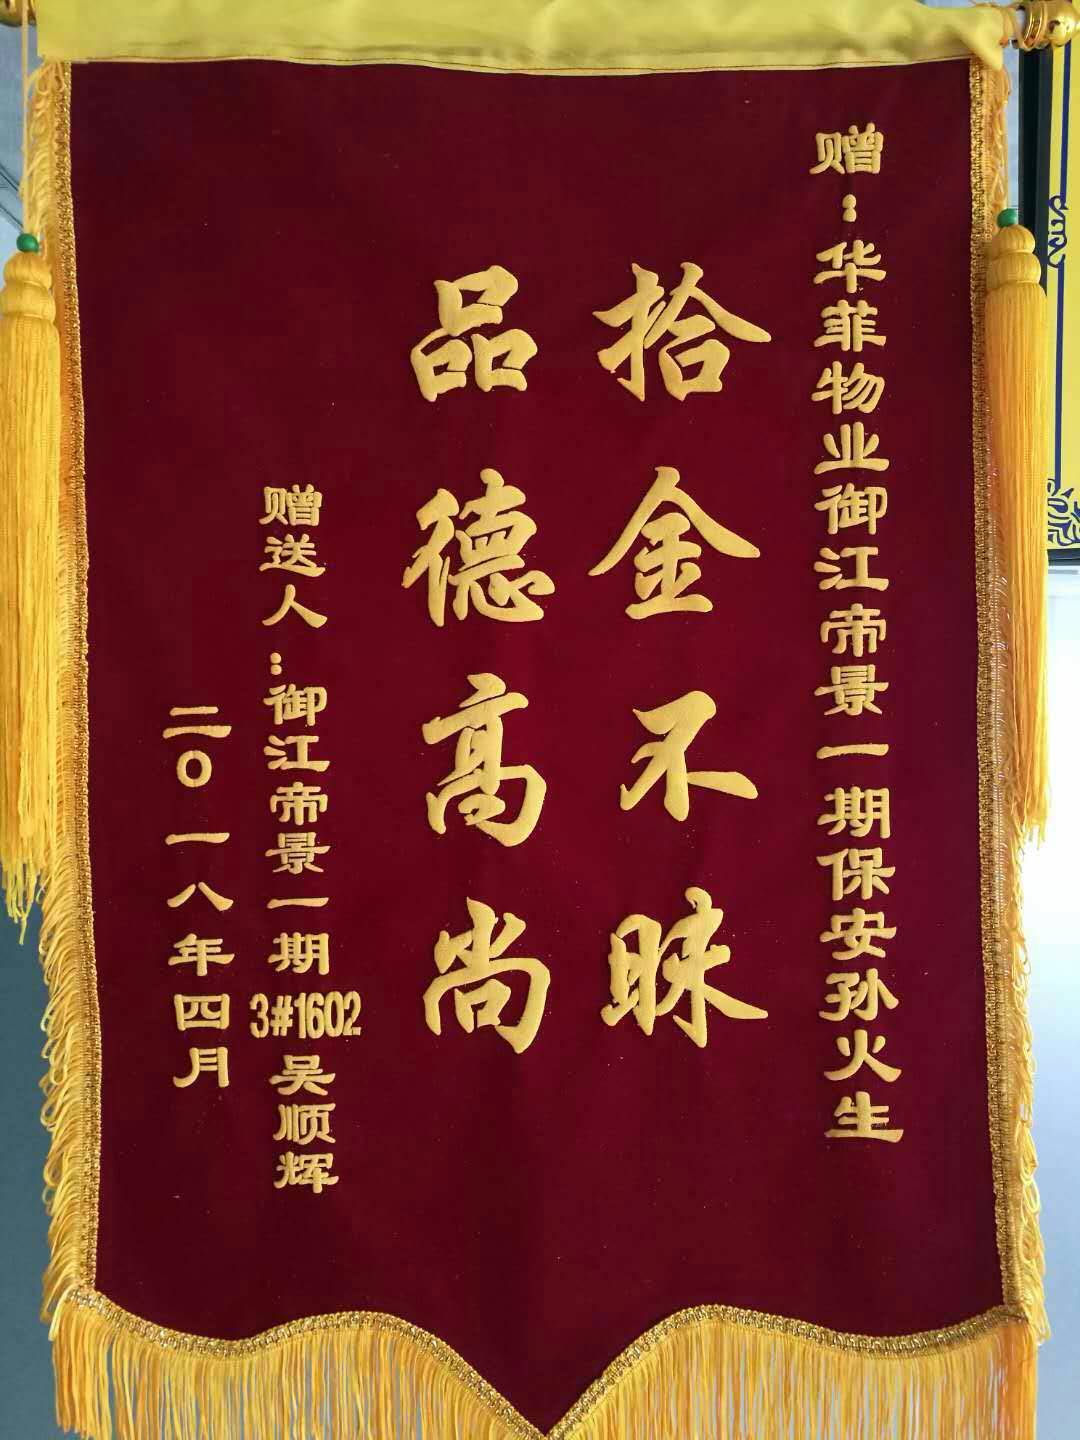 赠：华菲物业御江帝景一期保安孙火生
拾金不昧
品德高尚
赠送人：御江帝景一期3#1602吴顺辉
二〇一八年四月